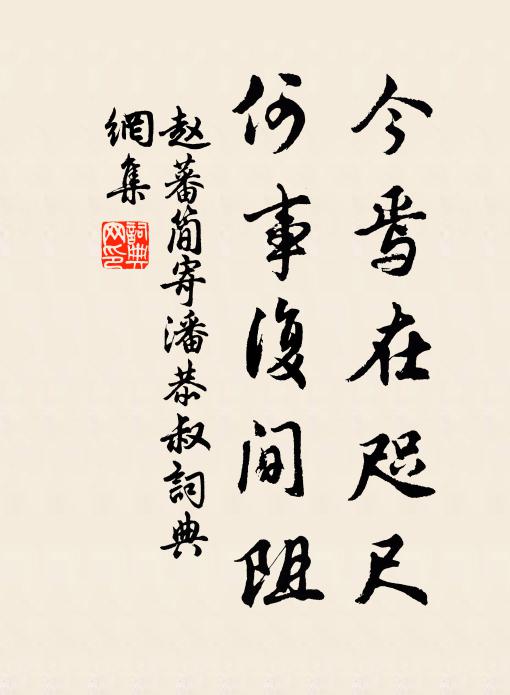 今焉在咫尺
何事復间阻
赵蕃简寄潘恭叔詞典
網集
詞典
网印